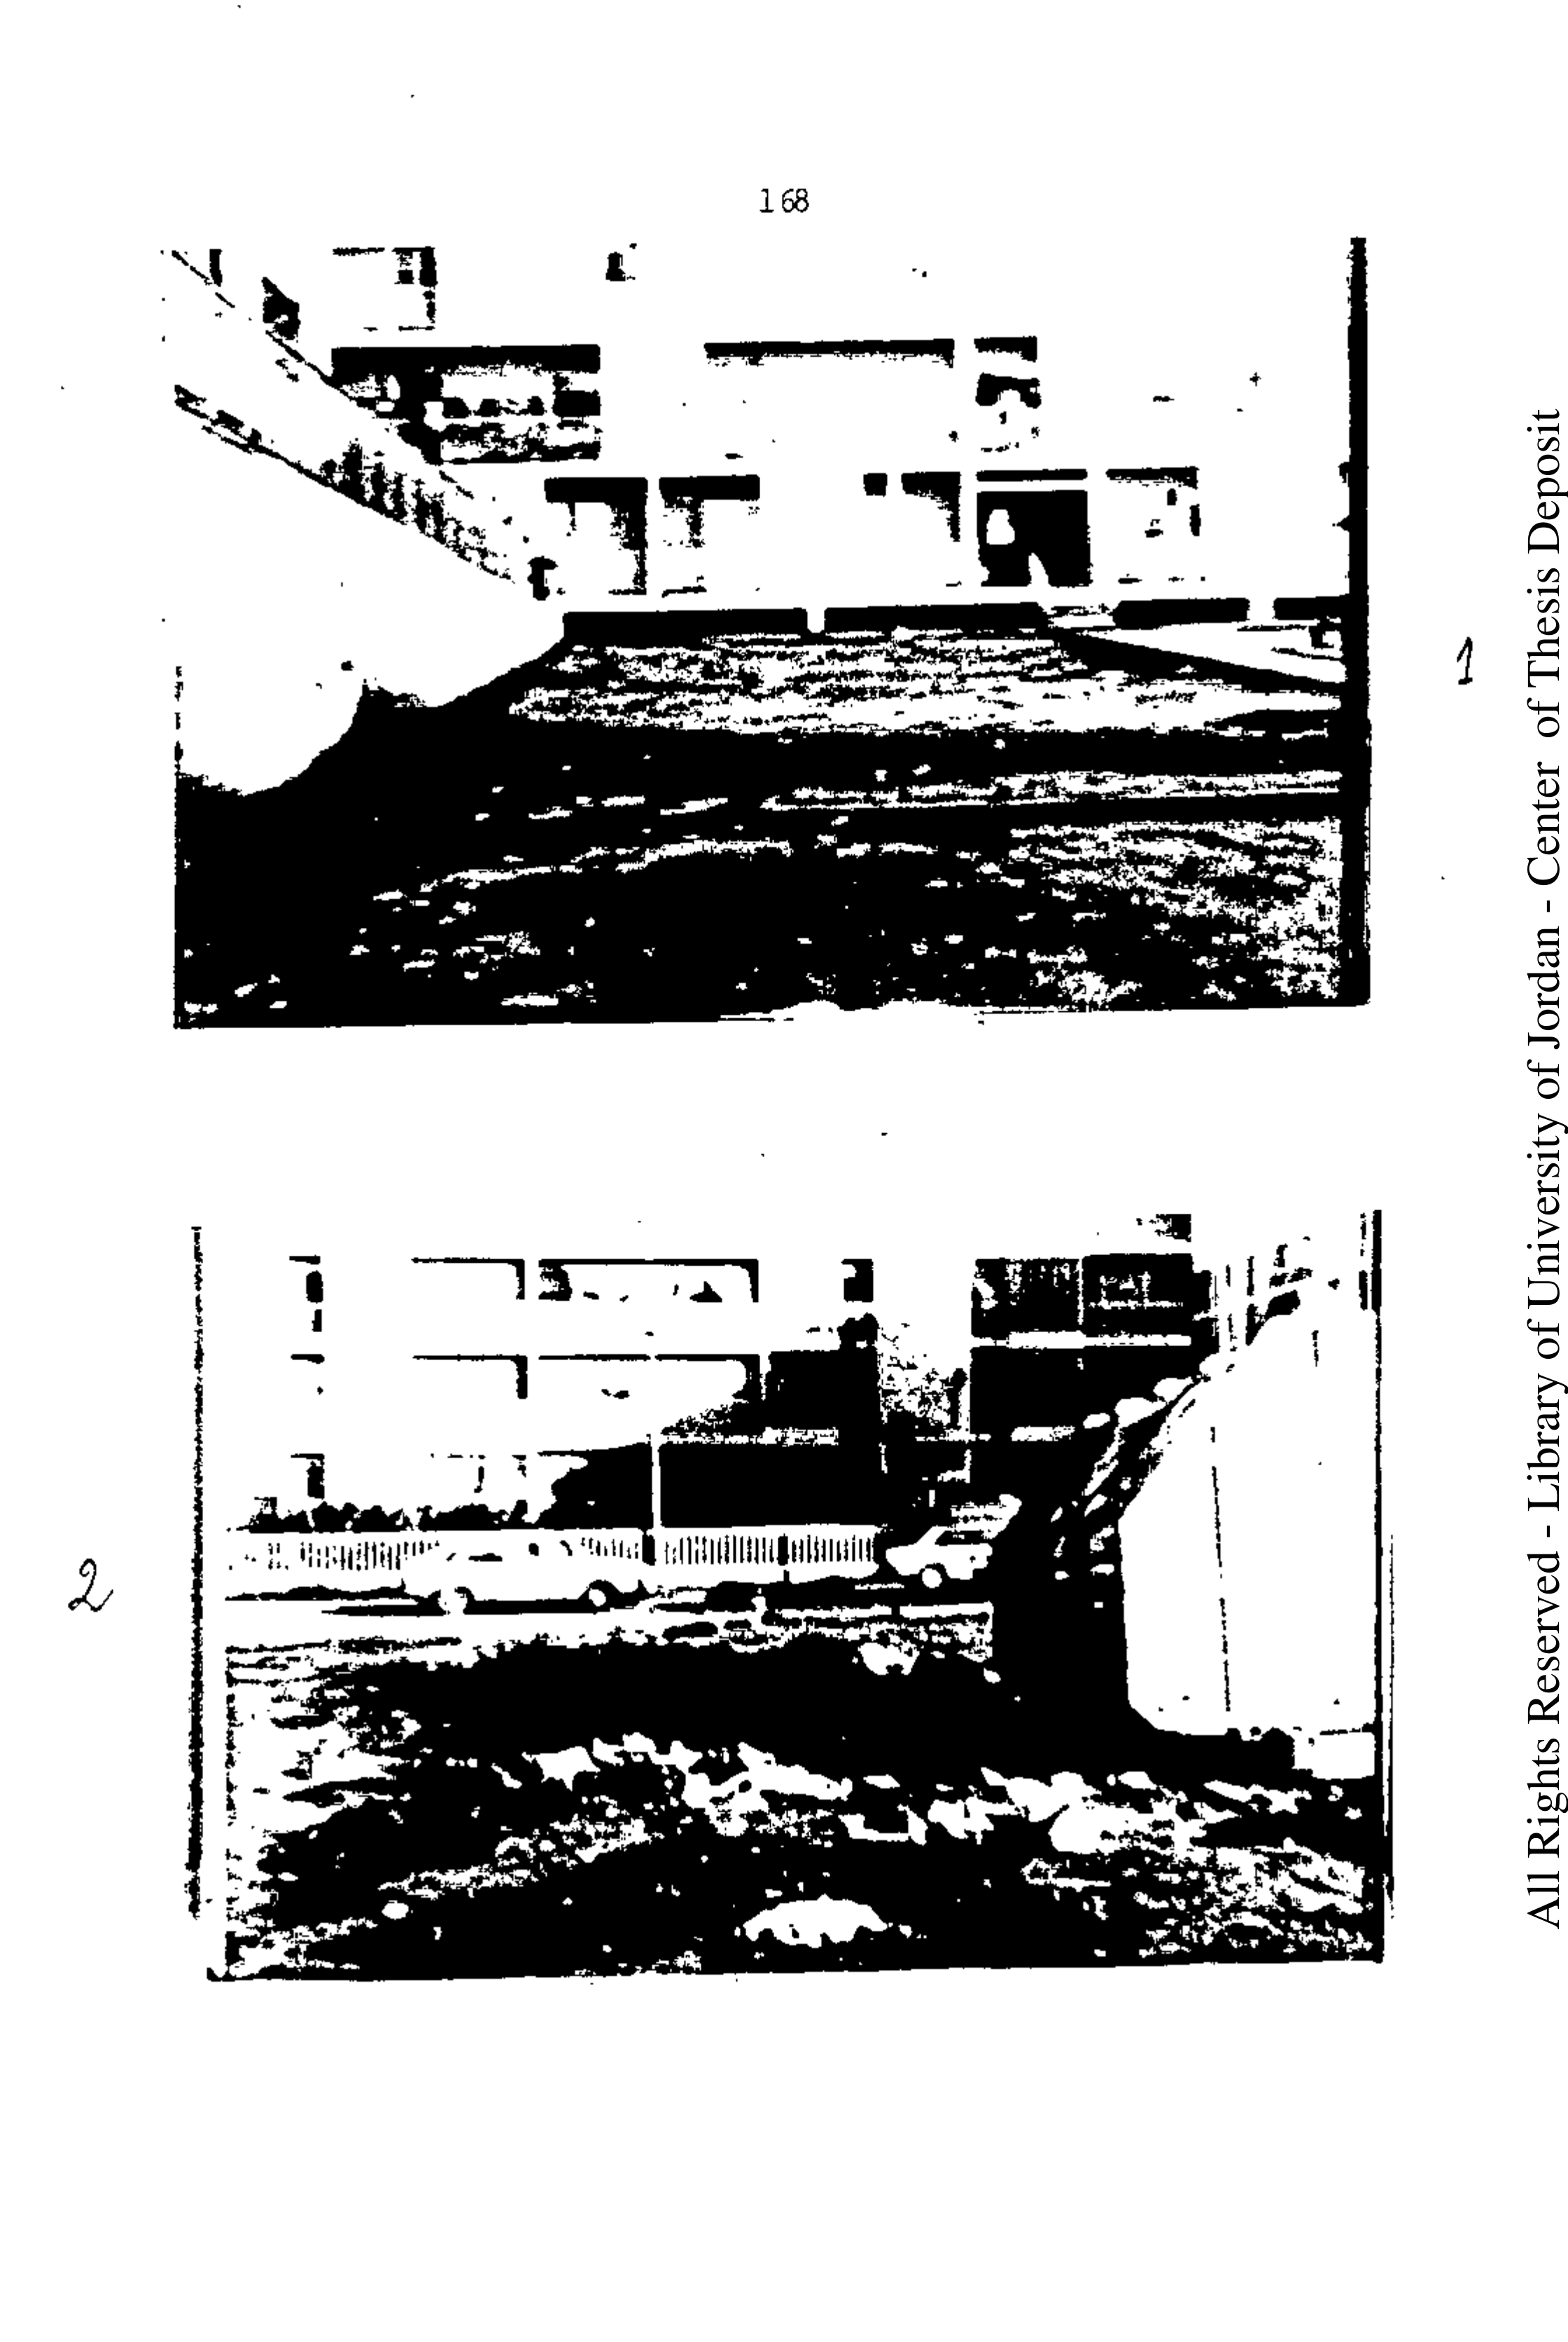 168
1
2
All Rights Reserved - Library of University of Jordan - Center of Thesis Deposit